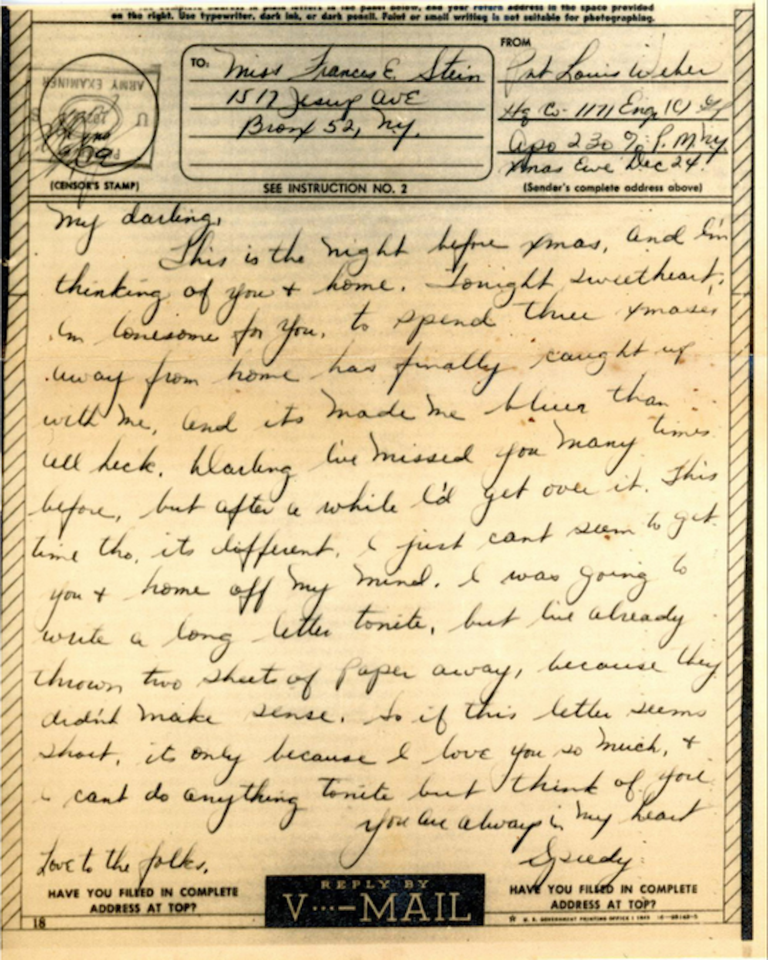 on the right. Use typewriter, dark ink, or dark pencil. Faint or small writing is not suitable for photographing.
ARMY EXAMINER
(CENSOR'S STAMP)
TO:
Miss Frances E. Stein
1517 Jesup Ave
Bronx 52, Ny.
SEE INSTRUCTION NO. 2
FROM
Pvt Louis Weber
Hq Co- 1171 Eng (C) Gp
Apo 230 % P.M. Ny
Xmas Eve Dec 24.
(Sender's complete address above)
My darling,
This is the night before Xmas, and I'm
thinking of you & home. Tonight sweetheart,
I'm lonesome for you. to spend three Xmases
away from home has finally caught up
with me, and its made me bluer than
all heck. Darling I've missed you many times
before, but after a while I'd get over it. This
time tho, its different. I just cant seem to get
you & home off my mind. I was going to
write a long letter tonite, but I've already
thrown two sheets of paper away, because they
didn't make sense. So if this letter seems
short, its only because I love you so much, &
I cant do anything tonite but think of you
You are always in my heart
Speedy
Love to the folks.
HAVE YOU FILLED IN COMPLETE
ADDRESS AT TOP?
REPLY BY
V···—MAIL
HAVE YOU FILLED IN COMPLETE
ADDRESS AT TOP?
18
U. S. GOVERNMENT PRINTING OFFICE : 1943